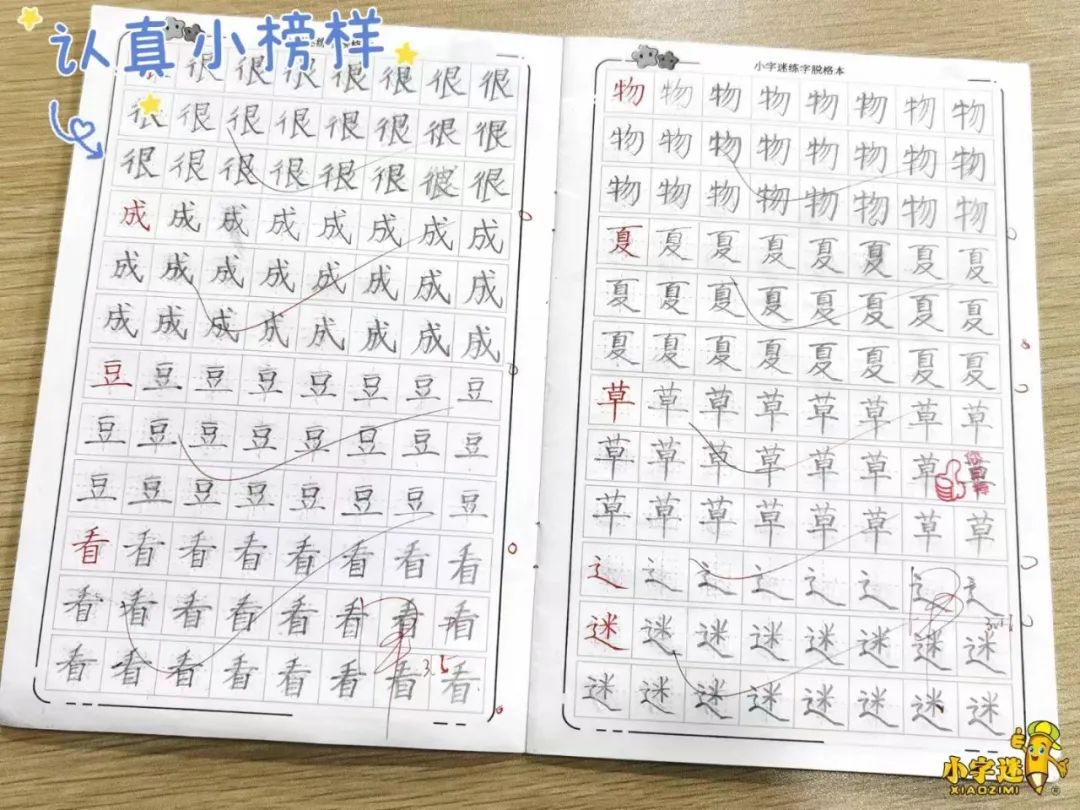 认真小榜样
很很很很很很很
很很很很很很很很
很很很很很很很很
成成成成成成成成
成成成成成成成成
成成成成成成成成
豆豆豆豆豆豆豆豆
豆豆豆豆豆豆豆豆
豆豆豆豆豆豆豆豆
看看看看看看看看
看看看看看看看看
看看看看看看看看
3.5
小字迷练字脱格本
物物物物物物物物
物物物物物物物物
物物物物物物物物
夏夏夏夏夏夏夏夏
夏夏夏夏夏夏夏夏
夏夏夏夏夏夏夏夏
草草草草草草草草
草草草草草草草
你真棒
草草草草草草草草
辶辶辶辶辶辶辶辶
迷迷迷迷迷迷迷迷
迷迷迷迷迷迷迷迷
小字迷
XIAOZIMI